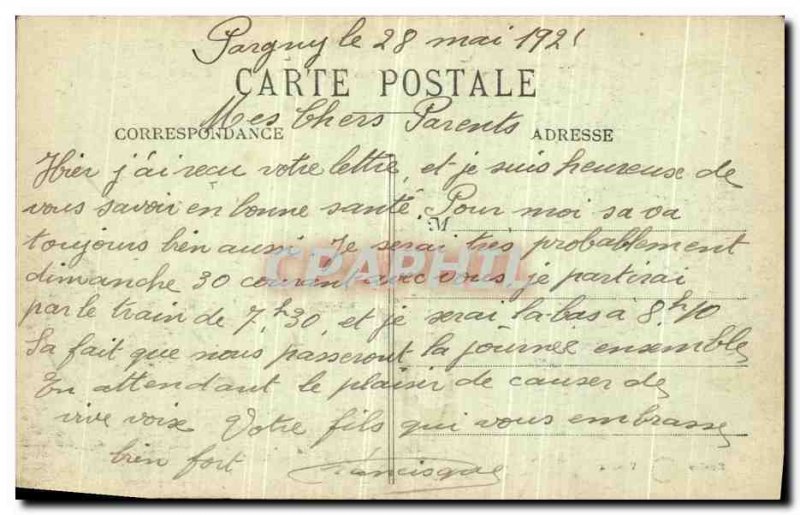 Pargny le 28 mai 1921
CARTE POSTALE
Mes Chers Parents
CORRESPONDANCE
ADRESSE
Hier j'ai recu votre lettre, et je suis heureuse de
vous savoir en bonne santé. Pour moi sa va
M
toujours bien aussi. Je serai très probablement
dimanche 30 courant avec vous, je partirai
CPAPHIL
par le train de 7h,30, et je serai la bas à 8h,10
Sa fait que nous passeront la journée ensemble
En attendant le plaisir de causer de
vive voix Votre fils qui vous embrasse
bien fort
Francisque